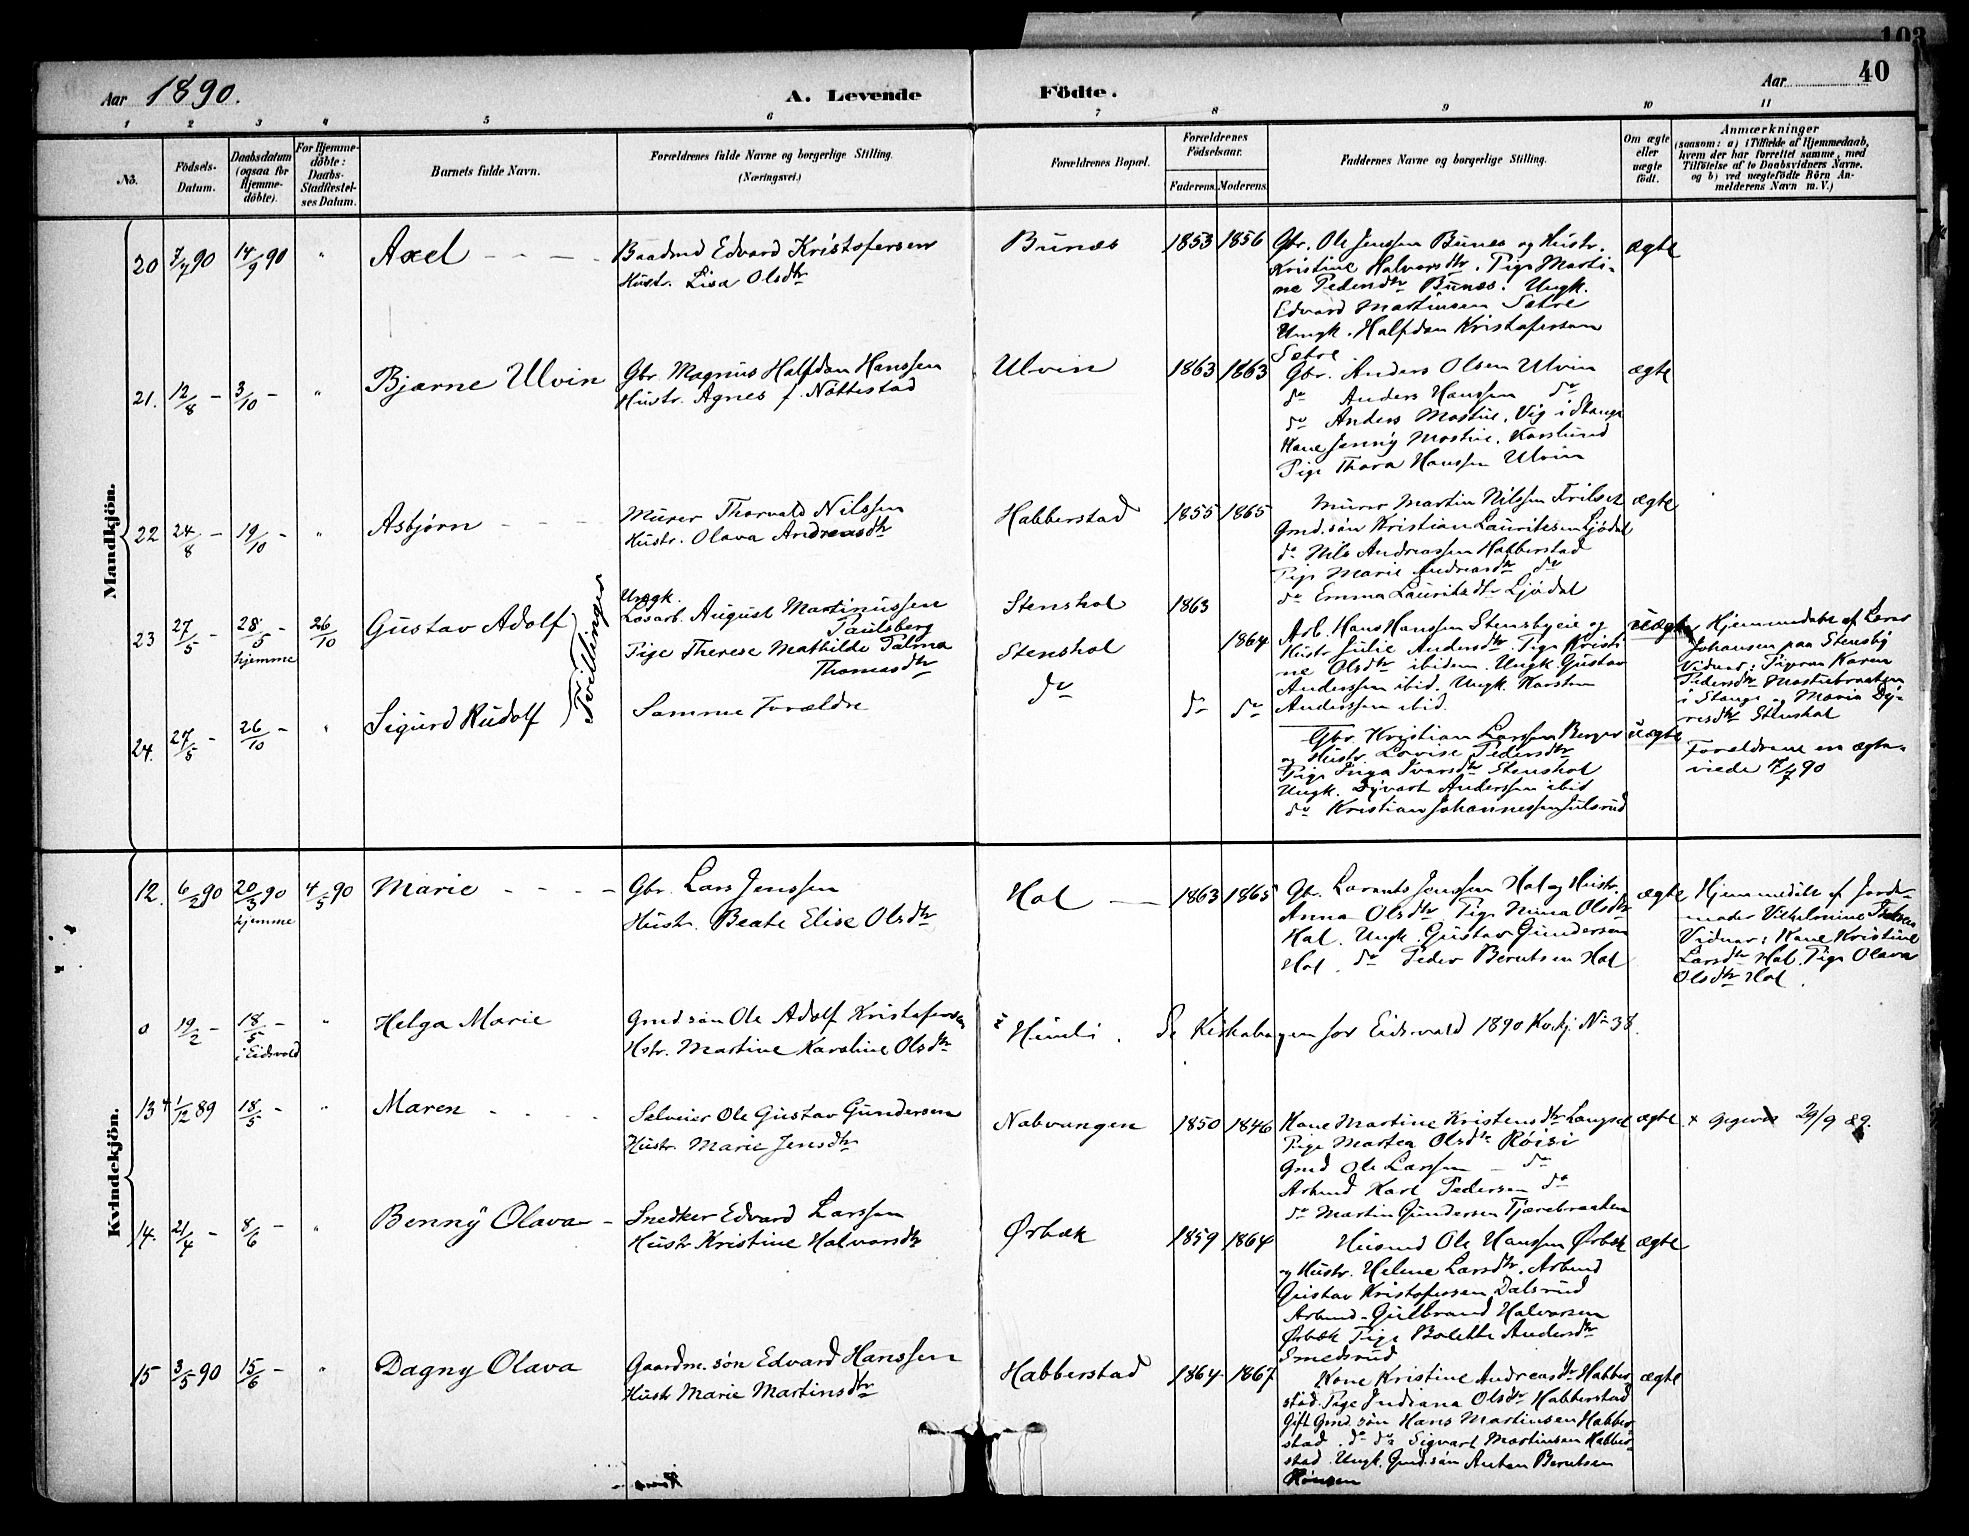 103
Aar 1890.
A. Levende Födte.
Aar 40
1 2 3 4 5 6 7 8 9 10 11
No.
Födsels-Datum.
Daabsdatum (ogsaa for Hjemme-döbte).
For Hjemme-döbte: Daabs-Stadfæstel-ses Datum.
Barnets fulde Navn.
Forældrenes fulde Navne og borgerlige Stilling.
(Næringsvei.)
Forældrenes Bopæl.
Forældrenes Födselsaar.
Faderens. Moderens.
Faddernes Navne og borgerlige Stilling.
Om ægte eller uægte födt.
Anmærkninger
(saasom: a) i Tilfælde af Hjemmedaab,
hvem der har forrettet samme, med
Tilföielse af to Daabsvidners Navne.
og b) ved uægtefödte Börn An-
melderens Navn m. V.)
Mandkjön.
20 7/7 90 14/9 90 " Axel
Baadmd Edvard Kristofersen
Hustr. Lisa Olsdtr
Bunæs 1853 1856
Gbr. Ole Jenssen Bunæs og Hustr.
Kristine Halvorsdtr. Pige Marti-
ne Pedersdtr Bunæs. Ungk.
Edvard Martinsen Sætre
Ungk. Halfdan Kristofersen
Sætre
ægte
21. 12/8 - 3/10 - " Bjarne Ulvin
Gbr. Magnus Halfdan Hanssen
Hustr. Agnes f. Nöttestad
Ulvin 1863 1863
Gbr. Anders Olsen Ulvin
do Anders Hanssen do
do Anders Mostue, Vig i Stange
Kone Jenny Mostue, Korslund
Pige Thora Hanssen Ulvin
ægte
22 24/8 - 19/10 - " Asbjørn
Murer Thorvald Nilssen
Hustr. Olava Andreasdtr
Habberstad 1855 1865
Murer Martin Nilssen Frilset
Gmd.søn Kristian Lauritssen Ljødal
do Nils Andreassen Habberstad
Pige Marie Andreasdtr do
do Emma Lauritsdtr Ljödal
ægte
23 27/5 - 28/5 - hjemme 26/10 Gustav Adolf
Tvillinger
Ungk.
Løsarb. August Martinussen
Paulsberg
Pige Therese Mathilde Palma
Thomasdtr
Stenshol 1863
Stenshol 1864
Arb. Hans Hanssen Stensbyeie og
Hustr Julie Andersdtr. Pige Kristi
ne Olsdtr ibidem. Ungk. Gustav
Anderssen ibid. Ungk. Karsten
Anderssen ibid.
uægte
Hjemmedöbt af Lars
Johansen paa Stensby
Vidner: Pigerne Karen
Pedersdtr Mostuebraaten
i Stange, Maria Dy-
resdtr Stenshol
24. 27/5 - 26/10 - " Sigurd Rudolf
Samme Forældre
do do do
Gbr. Kristian Larssen Berger
og Hustr. Lovise Pedersdtr
Pige Inga Ivarsdtr Stenshol
Ungk. Syvert Anderssen ibid
do Kristian Johannessen Julsrud
uægte
Forældrene er ægte-
viede 7/7 90
Kvindekjön.
12. 6/2 90 20/3 90 hjemme 4/5 90 Marie
Gbr. Lars Jenssen
Hustr. Beate Elise Olsdtr
Hol 1863 1865
Gbr. Lorents Jenssen Hol og Hustr.
Anna Olsdtr. Pige Nina Olsdtr
Hol. Ungk. Gustav Gundersen
Hol. do Peder Berntsen Hol
ægte
Hjemmedöbt af Jorde-
moder Vilhelmine
Vidner: Kone Kristine
Larsdtr Hol. Pige Olava
Olsdtr Hol.
0 19/2 - 18/5 - i Eidsvold " Helga Marie
Gmdsøn Ole Adolf Kristofersen
Hstr. Martine Karoline Olsdtr
Himli. Se Kirkebogen for Eidsvold 1890 Kvkj. No 38.
13 + 1/12 89 18/5 - " Maren
Selveier Ole Gustav Gundersen
Hustr. Marie Jensdtr
Nabvangen 1850 1846
Kone Martine Kristensdtr Langset
Pige Martea Olsdtr Röisi
Gmd Ole Larssen - do
Arbmd Karl Pedersen do
do Martin Gundersen Tjærebraaten
ægte
+ 29/9 89.
14. 21/4 - 8/6 - " Benny Olava
Snedker Edvard Larssen
Hustr Kristine Halvorsdtr
Ørbæk 1859 1864
Husmd Ole Hanssen Ørbæk
og Hustr. Helene Larsdtr. Arbmd
Gustav Kristofersen Dalsrud
Arbmd. Gulbrand Halvorsen
Ørbæk Pige Bolette Andersdtr
Smedsrud
ægte
15 3/5 90 15/6 - " Dagny Olava
Gaardm. søn Edvard Hanssen
Hustr Marie Martinsdtr
Habberstad 1864 1867
Kone Kristine Andreasdtr Habber-
stad. Pige Indiana Olsdtr Habberstad
Gift Gmd. søn Hans Martinsen Habber
stad. do do Sigvart Martinsen Habber-
stad. Ungk. Gmd.søn Anton Berntsen
Hönsen
ægte